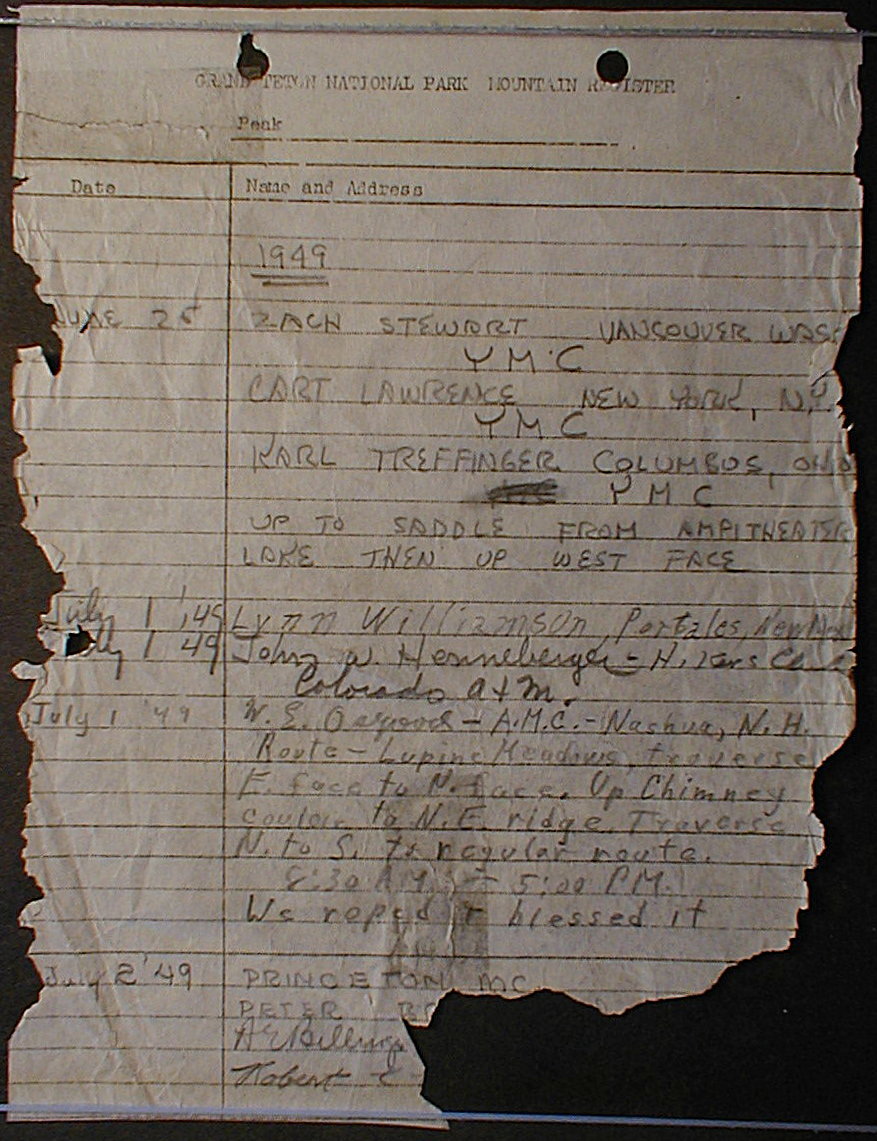 GRAND TETON NATIONAL PARK MOUNTAIN REGISTER
Peak
Date Name and Address
1949
JUNE 25 ZACH STEWART VANCOUVER WASH
Y M C
CART LAWRENCE NEW YORK, N.Y.
Y M C
KARL TREFFINGER COLUMBUS, OHIO
Y M C
UP TO SADDLE FROM AMPITHEATER
LAKE THEN UP WEST FACE
July 1 '49 Lynn Williamson, Portales, New Mex
July 1 49 John W. Henneberger - Hikers Club
Colorado A & M.
July 1 '49 W. E. Osgood - A.M.C. - Nashua, N.H.
Route - Lupine Meadows, traverse
E. face to N. face. Up Chimney
couloir to N.E. ridge. Traverse
N. to S. to regular route.
8:30 A.M. - 5:00 P.M.
We roped & blessed it
July 2 '49 PRINCETON MC
PETER
A E Billings
Robert